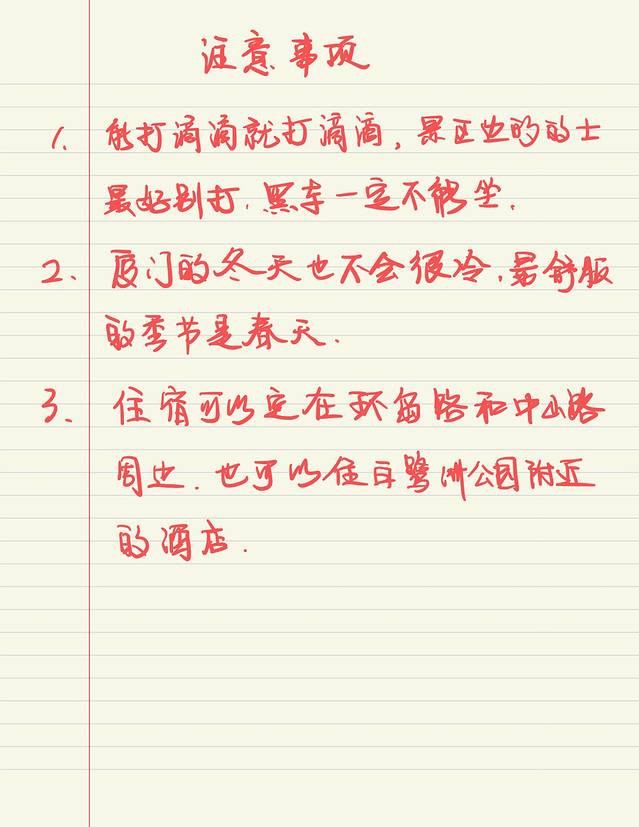 注意事项
1、能打滴滴就打滴滴,景区边的的士
最好别打.黑车一定不能坐.
2、厦门的冬天也不会很冷.最舒服
的季节是春天.
3、住宿可以定在环岛路和中山路
周边.也可以住白鹭洲公园附近
的酒店.